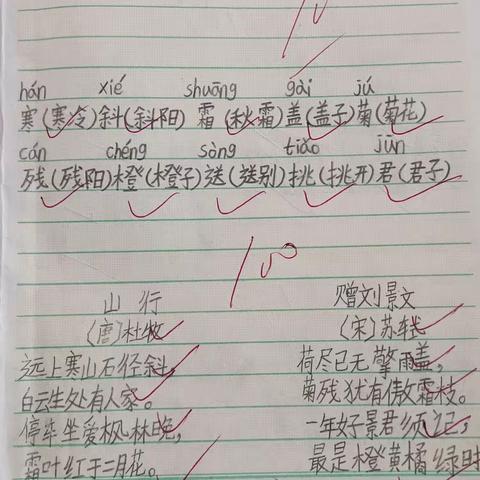 hán xié shuāng gài jú
寒(寒冷)斜(斜阳) 霜(秋霜)盖(盖子)菊(菊花)
cán chéng sòng tiāo jūn
残(残阳)橙(橙子)送(送别)挑(挑开)君(君子)
100
山 行
(唐)杜牧
远上寒山石径斜,
白云生处有人家。
停车坐爱枫林晚,
霜叶红于二月花。
赠刘景文
(宋)苏轼
荷尽已无擎雨盖,
菊残犹有傲霜枝。
一年好景君须记,
最是橙黄橘绿时